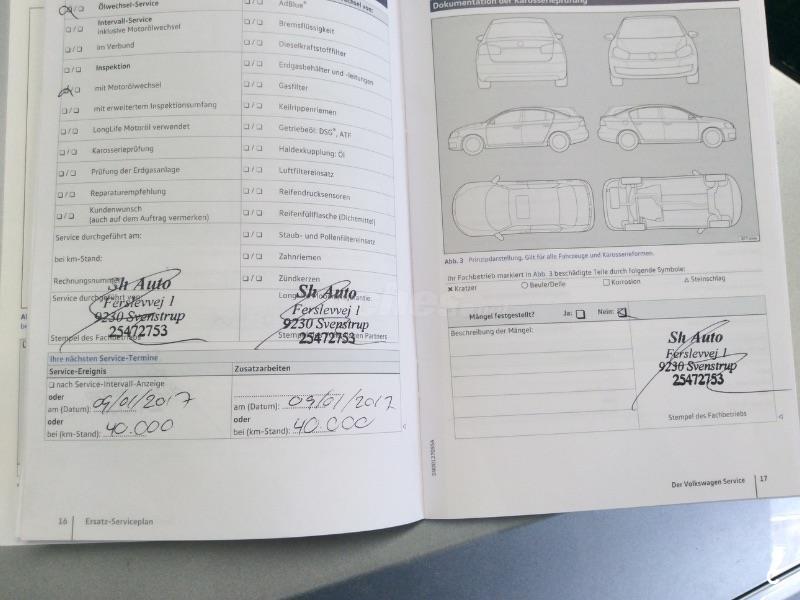 Dokumentation der Karosserieprüfung
Ölwechsel-Service
Intervall-Service
inklusive Motorölwechsel
im Verbund
Inspektion
mit Motorölwechsel
mit erweitertem Inspektionsumfang
LongLife Motoröl verwendet
Karosserieprüfung
Prüfung der Erdgasanlage
Reparaturempfehlung
Kundenwunsch
(auch auf dem Auftrag vermerken)
Service durchgeführt am:
bei km-Stand:
Rechnungsnummer
Service durchgeführt von
Sh Auto
Ferslevvej 1
9230 Svenstrup
25472753
Stempel des Fachbetriebs
AdBlue®
Bremsflüssigkeit
Dieselkraftstofffilter
Erdgasbehälter und -leitungen
Gasfilter
Keilrippenriemen
Getriebeöl: DSG®, ATF
Haldexkupplung: Öl
Luftfiltereinsatz
Reifendrucksensoren
Reifenfüllflasche (Dichtmittel)
Staub- und Pollenfiltereinsatz
Zahnriemen
Zündkerzen
Sh Auto
Ferslevvej 1
9230 Svenstrup
25472753
Partners
Ihre nächsten Service-Termine
Service-Ereignis
nach Service-Intervall-Anzeige
oder
am (Datum): 09/01/2017
oder
bei (km-Stand): 40.000
Zusatzarbeiten
am (Datum): 09/01/2017
oder
bei (km-Stand): 40.000
16 Ersatz-Serviceplan
Abb. 3 Prinzipdarstellung. Gilt für alle Fahrzeuge und Karosserieformen.
Ihr Fachbetrieb markiert in Abb. 3 beschädigte Teile durch folgende Symbole:
Kratzer Beule/Delle Korrosion Steinschlag
Mängel festgestellt? Ja: Nein:
Beschreibung der Mängel:
Sh Auto
Ferslevvej 1
9230 Svenstrup
25472753
Stempel des Fachbetriebs
Der Volkswagen Service 17